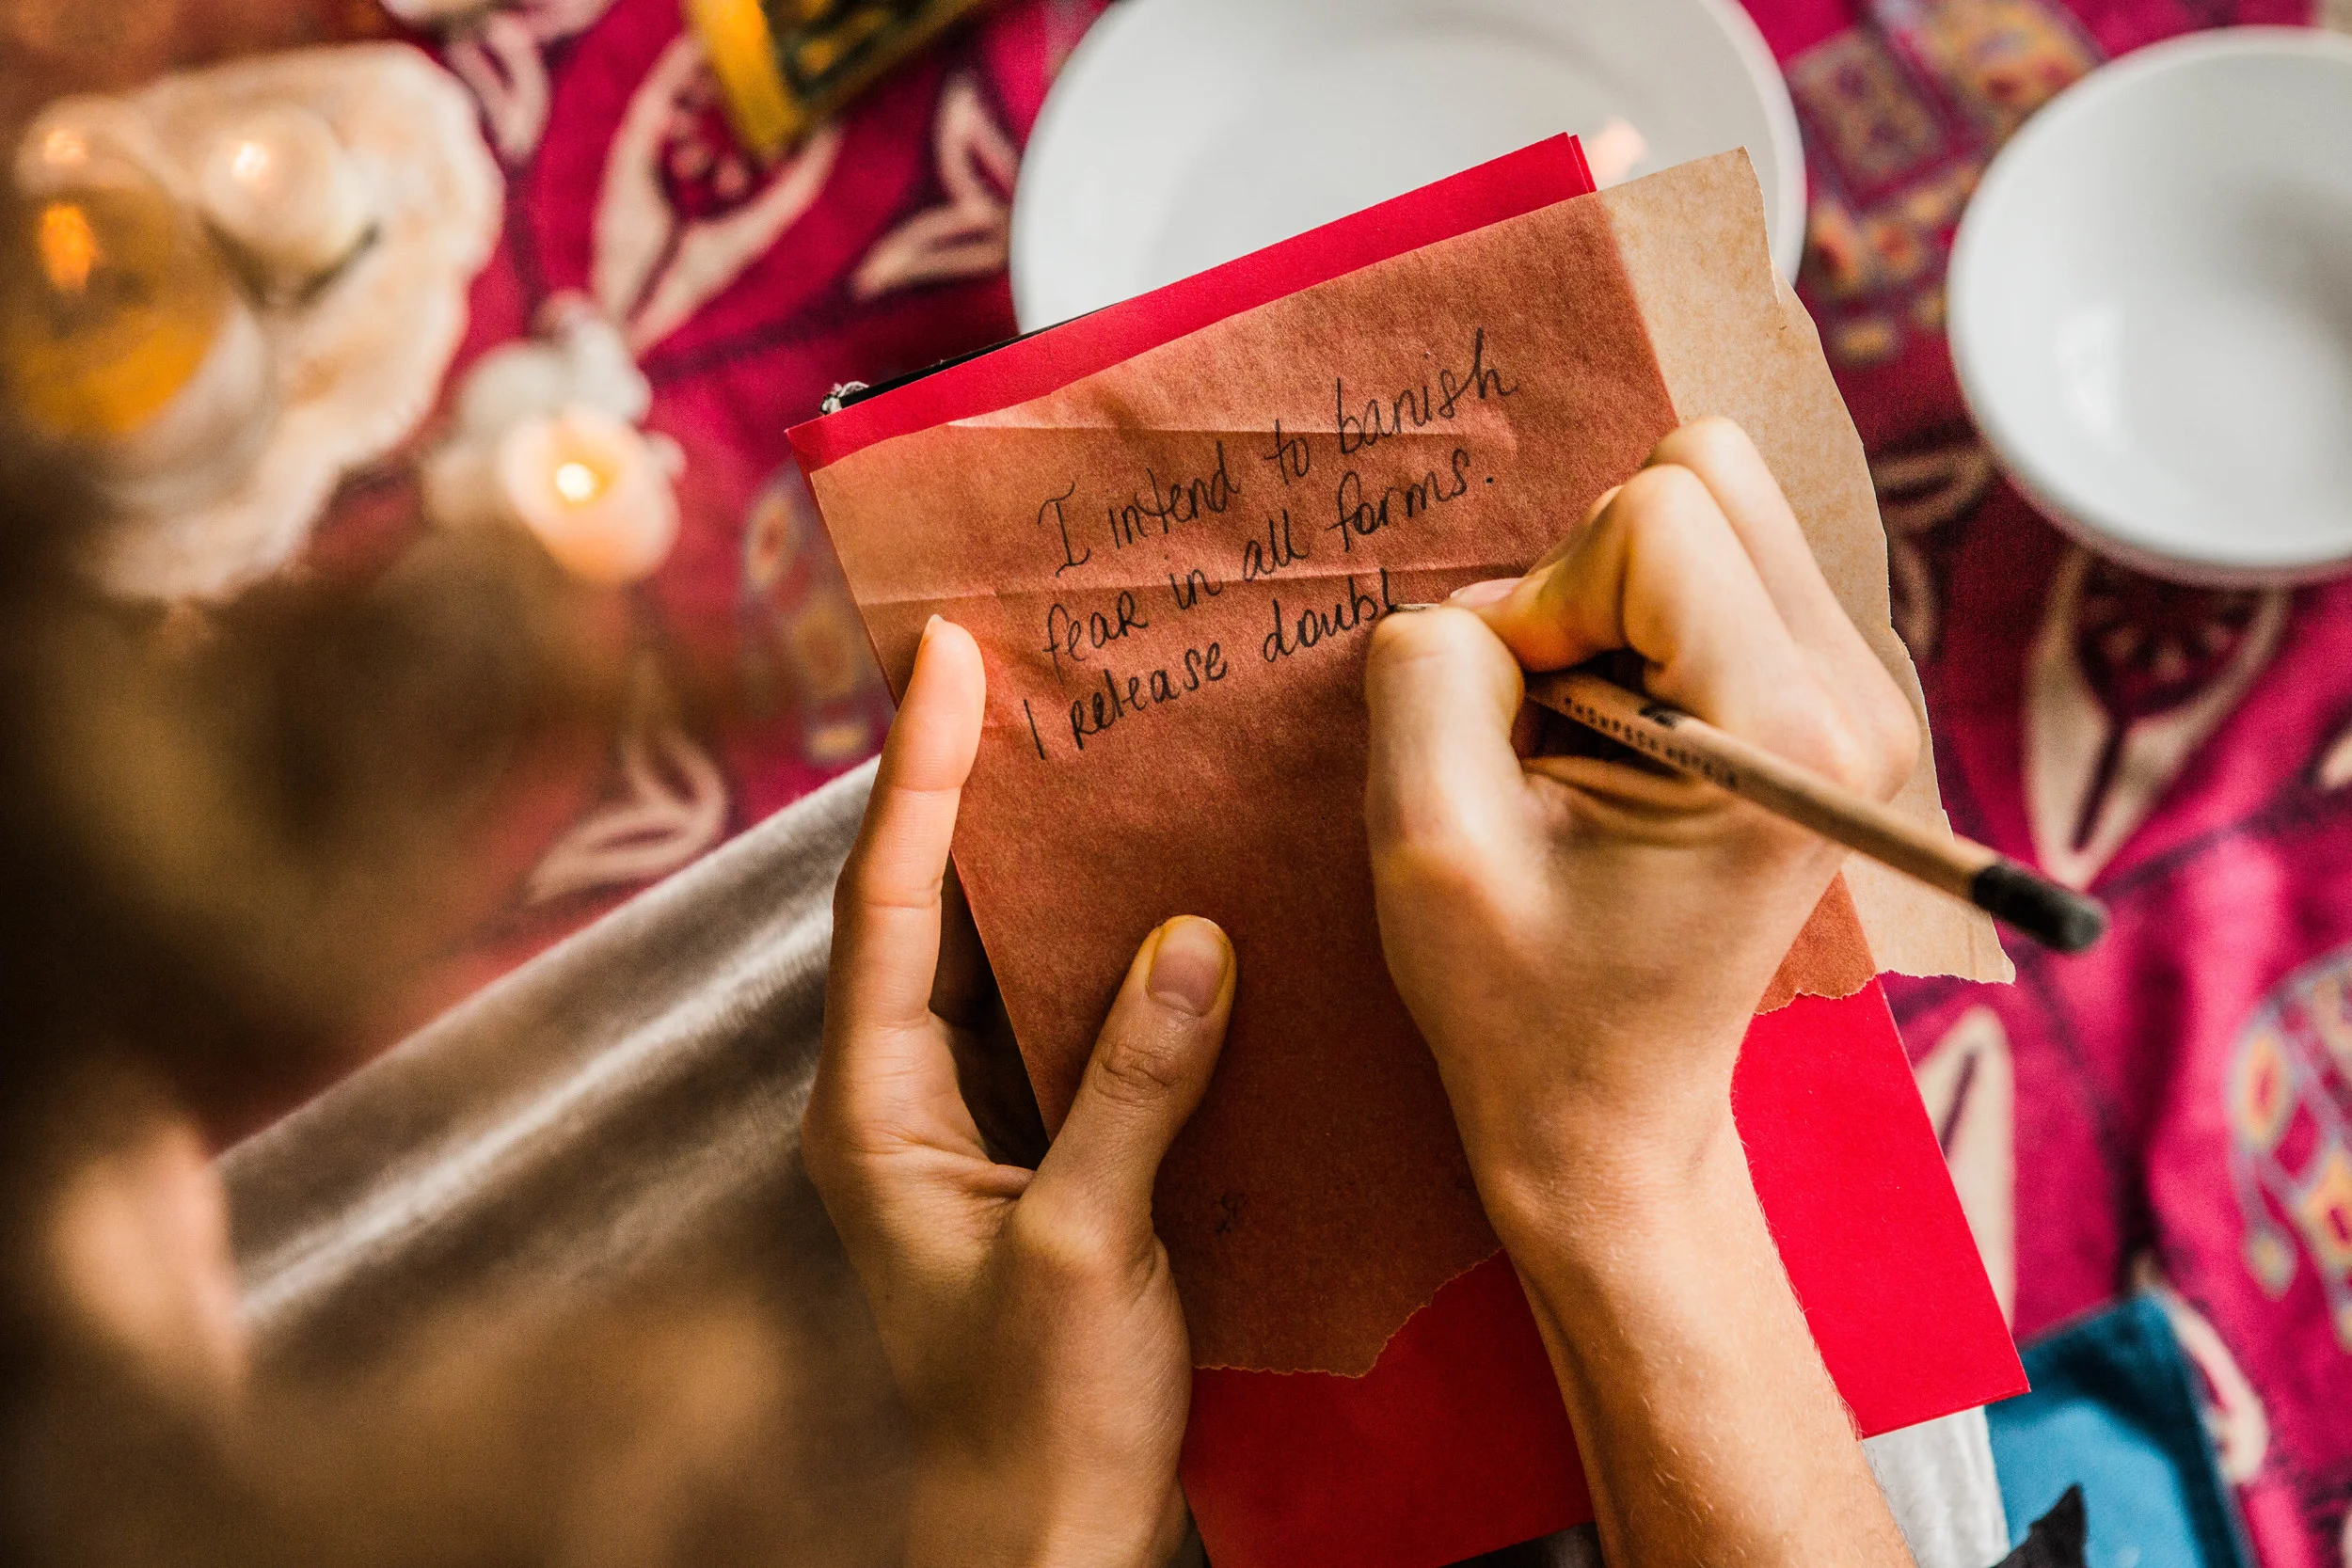 I intend to banish
fear in all forms.
I release doubt
THOMPSON HOTELS